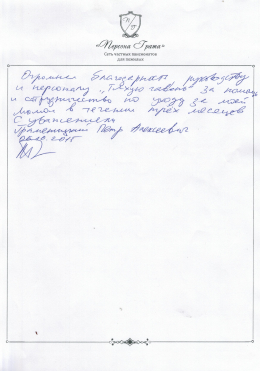 «Персона Грата»
Сеть частных пансионатов
для пожилых
Огромная благодарность руководству
и персоналу за помощь
и сотрудничество по уходу за моей
мамой в течении трёх месяцев
С уважением
Петр Алексеевич